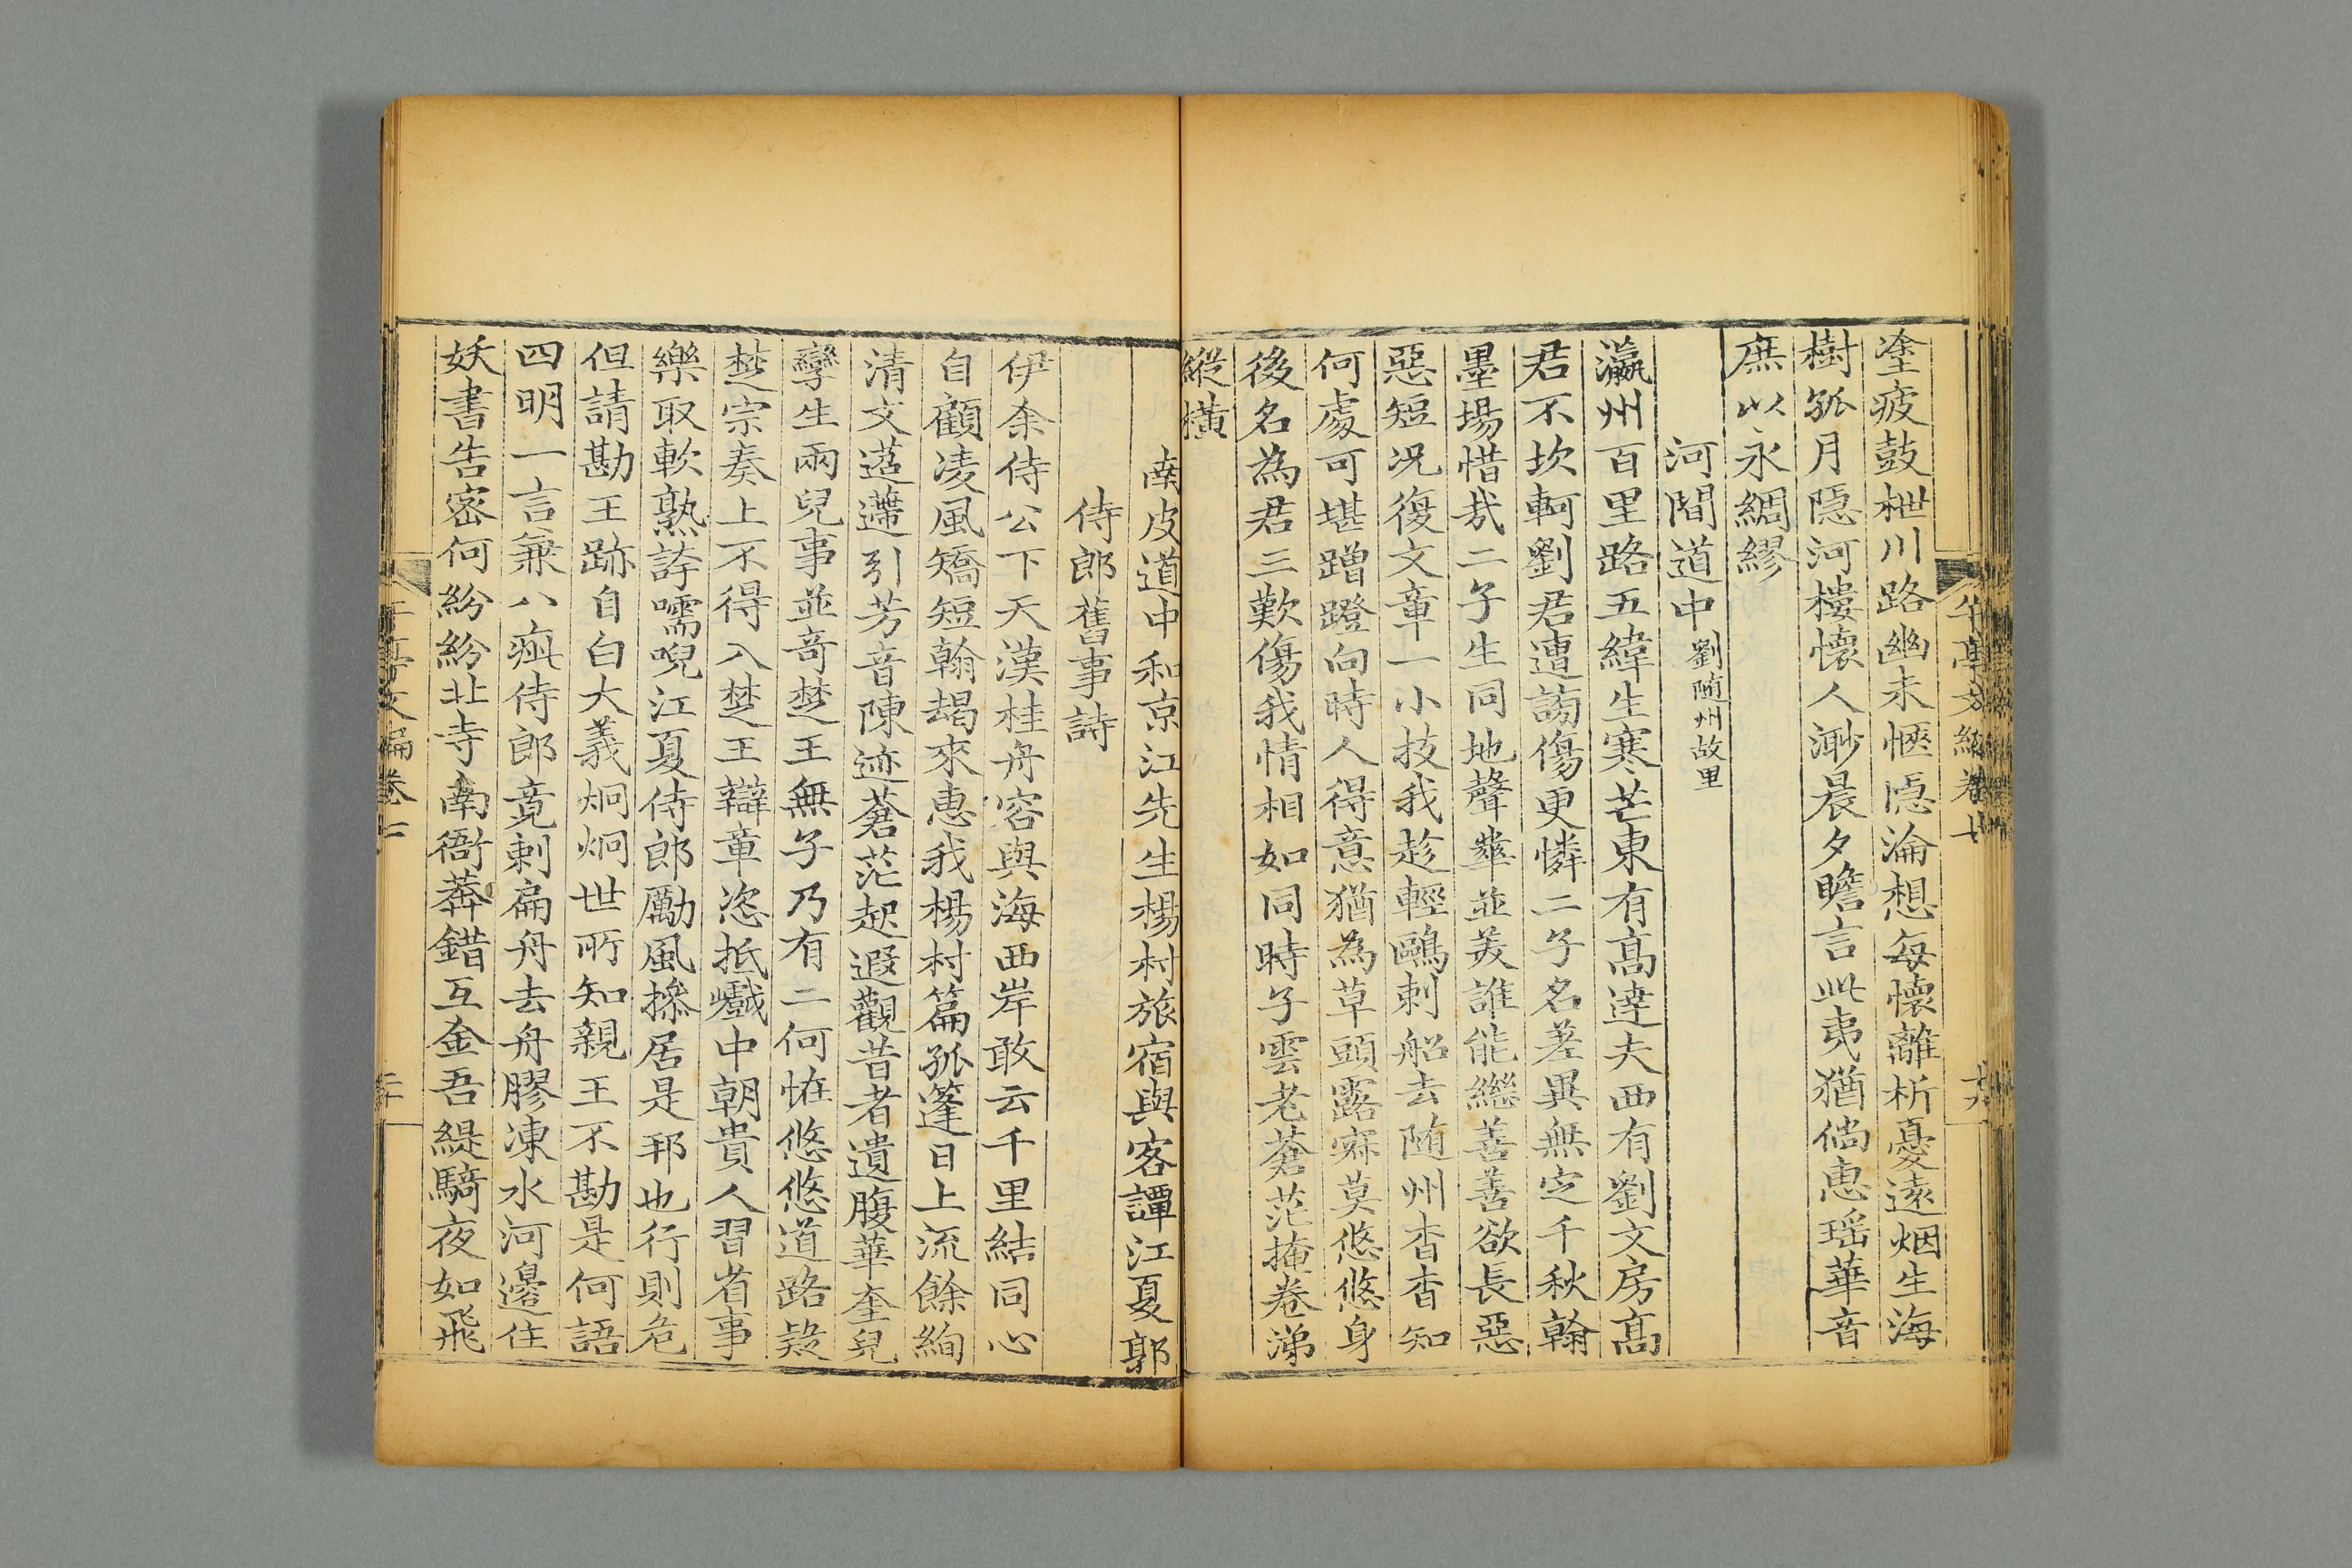 塗疲鼓枻川路幽未愜隱淪想每懷離析憂遠烟生海
樹孤月隱河樓懷人渺晨夕瞻言此夷猶倘惠瑤華音
庶以永綢繆
河間道中劉隨州故里
瀛州百里路五緯生寒芒東有高達夫西有劉文房高
君不坎軻劉君遭謗傷更憐二子名差異無定千秋翰
墨場惜哉二子生同地聲華並美誰能繼善善欲長惡
惡短况復文章一小技我趁輕鷗刺船去随州杳杳知
何處可堪蹭蹬向時人得意猶為草頭露寂莫悠悠身
後名為君三歎傷我情相如同時子雲老蒼茫掩卷涕
縱橫
南皮道中和京江先生楊村旅宿與客譚江夏郭
侍郎舊事詩
伊余侍公下天漢桂舟容與海西岸敢云千里結同心
自顧凌風矯短翰朅來惠我楊村篇孤篷日上流餘絢
清文遒灑引芳音陳迹蒼茫起遐觀昔者遺腹華奎兒
孿生兩兒事並奇楚王無子乃有二何恠悠悠道路疑
楚宗奏上不得入楚王辯章恣抵巇中朝貴人習省事
樂取軟熟誇嚅唲江夏侍郎勵風摻居是邦也行則危
但請勘王跡自白大義炯炯世所知親王不勘是何語
四明一言兼八痴侍郎竟剌扁舟去舟膠凍水河邊住
妖書告密何紛紛北寺南衙莽錯互金吾緹騎夜如飛
午亭文編卷七